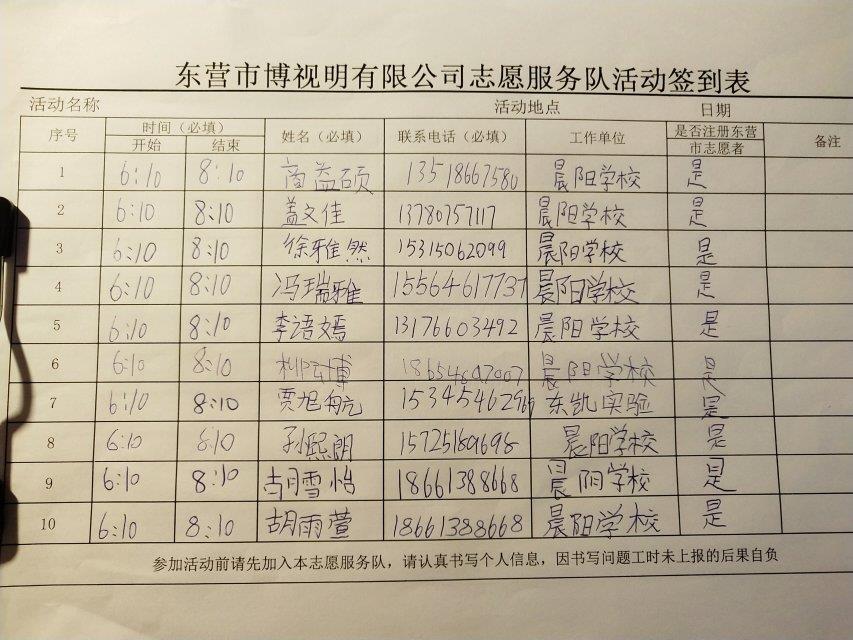 东营市博视明有限公司志愿服务队活动签到表
活动名称 活动地点 日期
序号 时间（必填） 姓名（必填） 联系电话（必填） 工作单位 是否注册东营 备注
开始 结束 市志愿者
1 6:10 8:10 商益硕 13518667580 晨阳学校 是
2 6:10 8:10 盖文佳 13780757117 晨阳学校 是
3 6:10 8:10 徐雅然 15315062099 晨阳学校 是
4 6:10 8:10 冯瑞雅 15564617737 晨阳学校 是
5 6:10 8:10 李语嫣 13176603492 晨阳学校 是
6 6:10 8:10 晨阳学校 是
7 6:10 8:10 贾旭航 15345462969 东凯实验 是
8 6:10 8:10 孙熙朗 15725189698 晨阳学校 是
9 6:10 8:10 胡雪怡 18661388668 晨阳学校 是
10 6:10 8:10 胡雨萱 18661388668 晨阳学校 是
参加活动前请先加入本志愿服务队，请认真书写个人信息，因书写问题工时未上报的后果自负